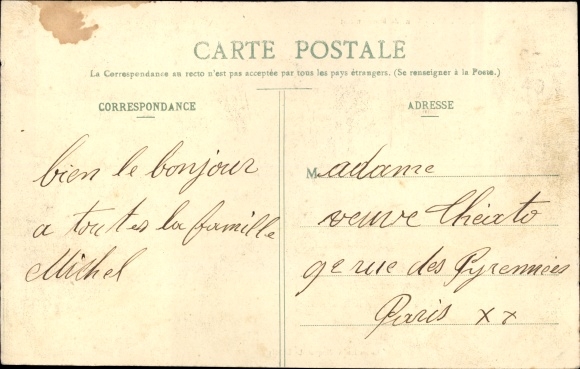 CARTE POSTALE
La Correspondance au recto n'est pas acceptée par tous les pays étrangers. (Se renseigner à la Poste.)
CORRESPONDANCE
bien le bonjour
a toutes la famille
Michel
ADRESSE
Madame
veuve
rue des Pyrennées
Paris xx